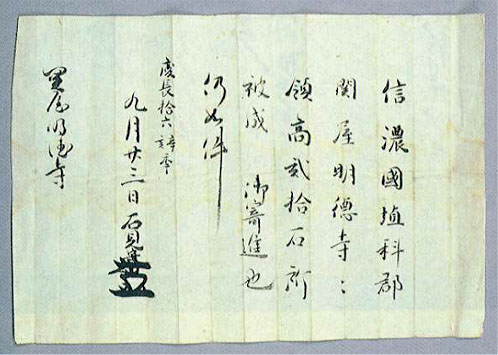 信濃國埴科郡
関屋明德寺〻
領高弐拾石所
被成 御寄進也
仍如件
慶長拾六
九月廿三日 石見守
屋明徳寺